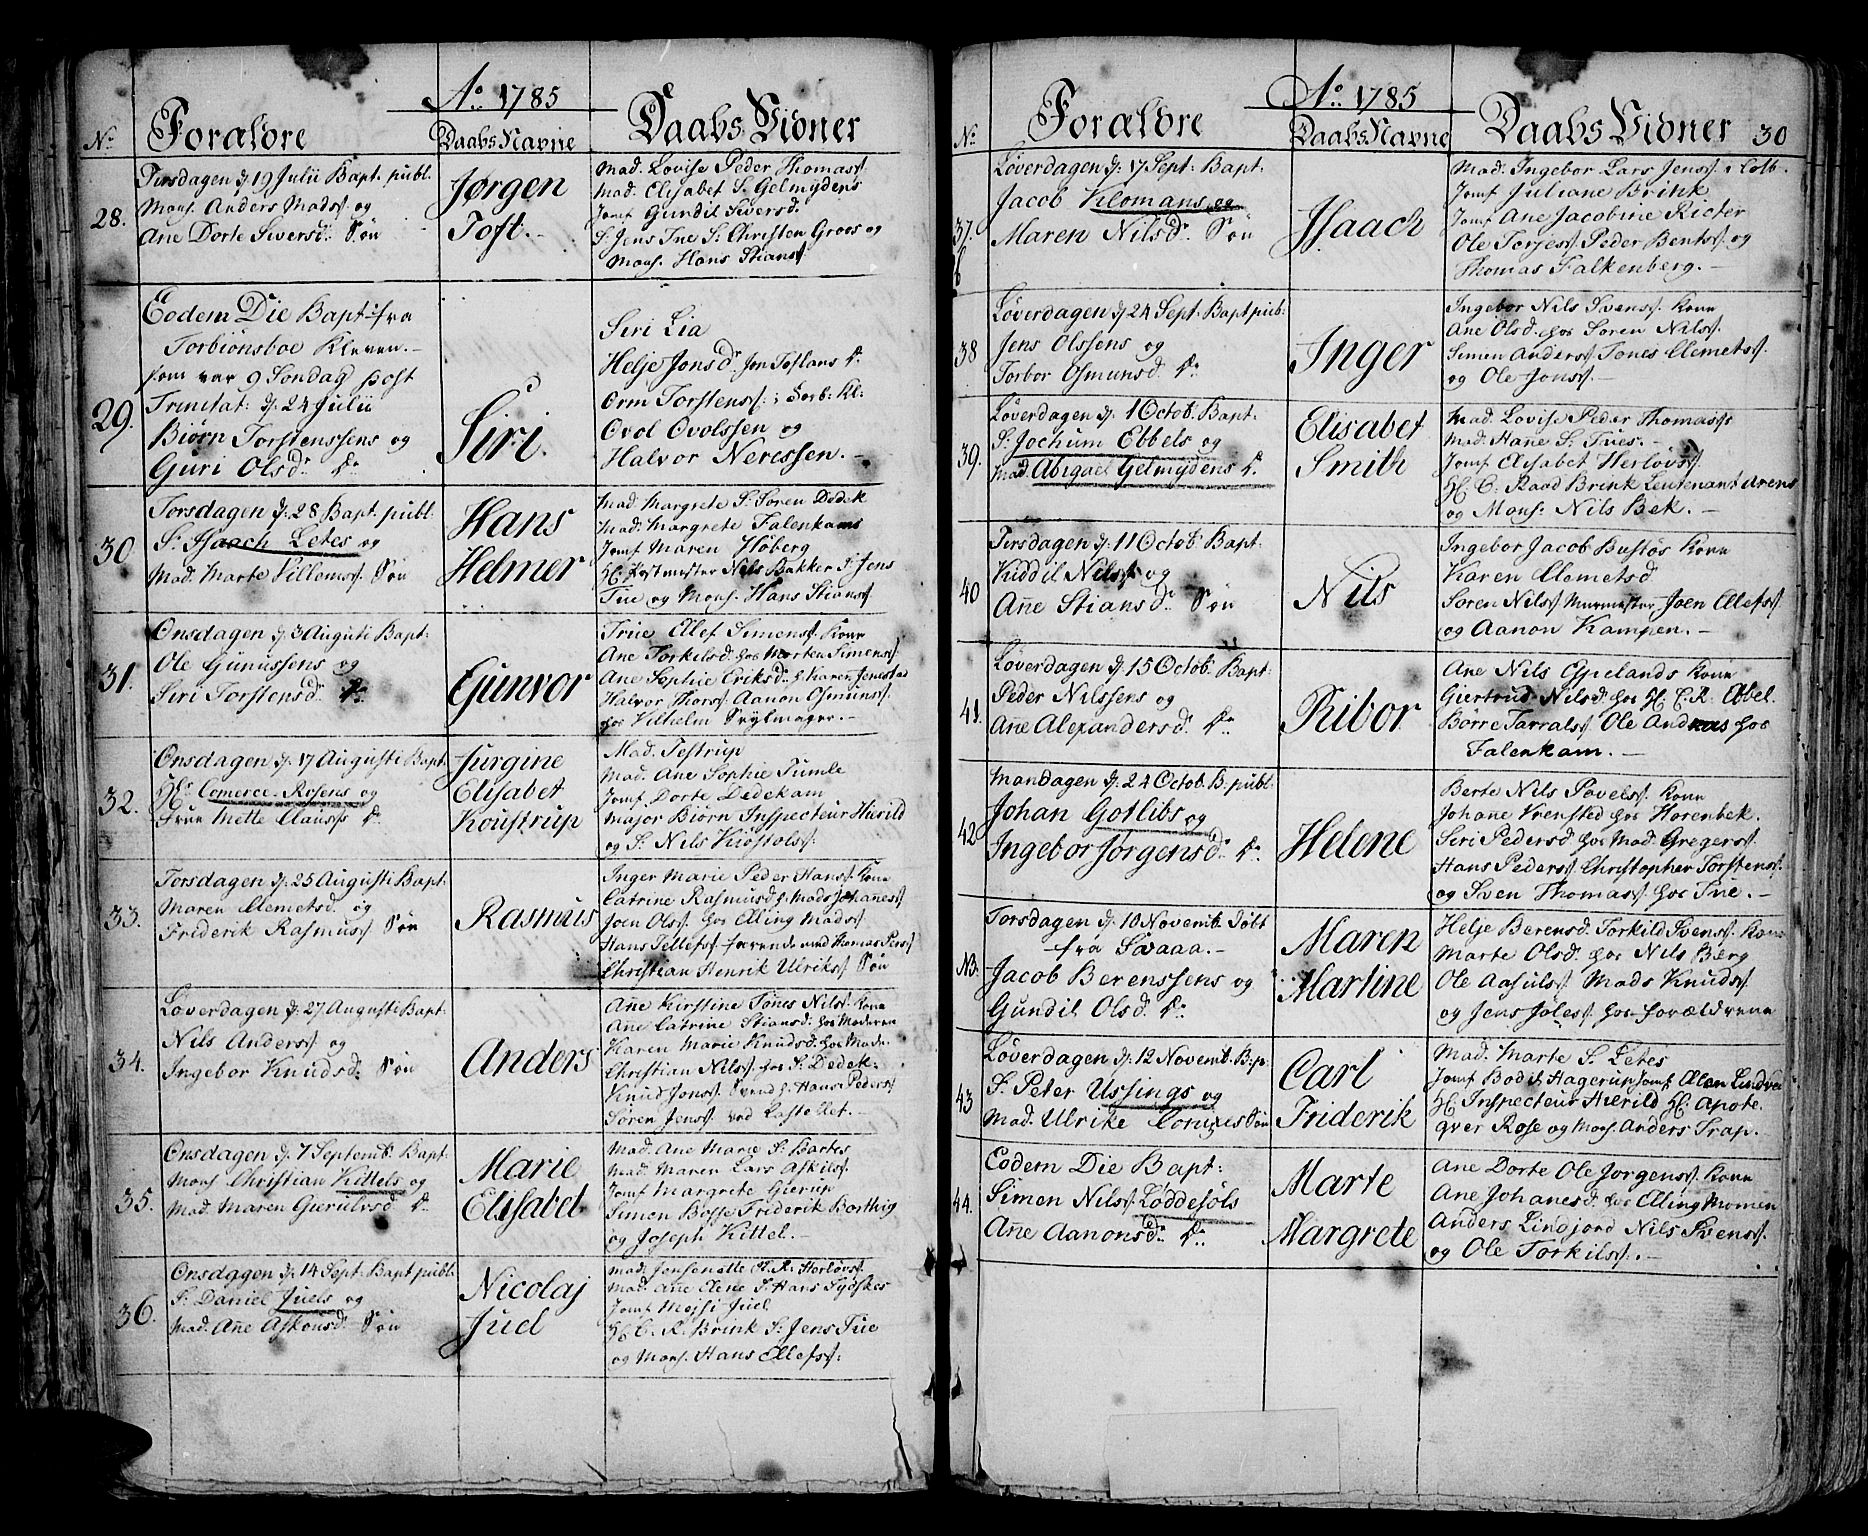 Ao. 1785
No. Forældre
Daabs Navne
Daabs Vidner
28.
Tirsdagen d. 19 Julii Bapt. publ.
Mons. Anders Madss. og
Ane Dorte Siversd. Søn
Jørgen
Toft.
Mad. Lovise Peder Thomass.
Mad. Elisabet S. Gelmydens
Jomf. Gundil Siversd.
S. Jens Tue S. Christen Groos og
Mons. Hans Stianss.
29.
Eodem Die Bapt. fra
Torbiønsboe Kleven.
som var 9 Søndag post
Trinitat: d. 24 Julii
Biørn Torstenssens og
Guri Olsd. Dr.
Siri.
Siri Lia
Helje Jonsd. Jon Toflans Dr.
Orm Torstenss. i Torb. Kl:
Ovol Ovolssen og
Halvor Neressen.
30
Torsdagen d. 28 Bapt. publ.
S. Isaach Letes og
Mad. Marte Villomss. Søn
Hans
Helmer
Mad. Margrete S. Søren Dedek
Mad. Margrete Falenkams
Jomf. Maren Høberg
H. Postmester Nils Bakker S. Jens
Tue og Mons. Hans Stianss.
31.
Onsdagen d. 3 Augusti Bapt:
Ole Gunussens og
Siri Torstensd. Dr.
Gunvor
True Elef Simonss. Kone
Ane Torkilsd. hos Morten Simenss.
Ane Sophie Eriksd. h. Karen Jenstad
Halvor Thorss. Aanon Osmunss.
hos Vilhelm Seylmager.
32.
Onsdagen d. 17 Augusti Bapt
Hr. Comerce-Rosens og
Frue Mette Clauss. Dr.
Jurgine
Elisabet
Koustrup
Mad. Testrup
Mad. Ane Sophie Tumle
Jomf. Dorte Dedekam
Major Biørn Inspecteur Hierild
og S. Nils Kiøstolss.
33.
Torsdagen d. 25 Augusti Bapt.
Maren Clemetsd. og
Friderik Rasmuss. Søn
Rasmus
Inger Marie Peder Hanss. Kone
Catrine Rasmusd. h. Mads Johaness.
Joen Olss. hos Elling Madss.
Hans Tellefss. farende med Thomas Perss.
Christian Henrik Ulrikss. Søn
34.
Løverdagen d. 27 Augusti Bapt.
Nils Anderss. og
Ingebor Knudsd. Søn
Anders
Ane Kirstine Tønes Nilss. Kone
Ane Catrine Stiansd. hos Moderen
Karen Marie Knudsd. hos Made.
Christian Nilss. hos S. Dedek.
Knud Jonss. Svend h. Hans Pederss.
Søren Jenss. ved Castellet.
35.
Onsdagen d. 7 Septemb. Bapt.
Mons. Christian Kittels og
Mad. Maren Gierulvsd. Dr.
Marie
Elisabet
Mad. Ane Marie S. Bartes
Mad. Maren Lars Askilss.
Jomf. Margrete Gierup
Simon Bosse Friderik Borthvig
og Joseph Kittel.
36.
Onsdagen d. 14 Sept. Bapt publ.
S. Daniel Juels og
Mad. Ane Askonsd. Søn
Nicolaj
Juel
Mad. Jensenette C. R. Herlovs.
Mad. Ane Elene S. Hans Sydskes
Jomf. Mejsi Juel
H. C. R. Brink S. Jens Tue
og Mons. Hans Ellefss.
Ao. 1785
No. Forældre
Daabs Navne
Daabs Vidner
30
37.
Løverdagen d. 17 Sept. Bapt.
Jacob Klomans og
Maren Nilsd. Søn
Isaach
Mad. Ingebor Lars Jenss. i Colb.
Jomf. Juliane Brink
Jomf. Ane Jacobine Ricter
Ole Torjess. Peder Bentss. og
Thomas Falkenberg.
38
Løverdagen d. 24 Sept. Bapt pub:
Jens Olssens og
Torbor Osmunsd. Dr.
Inger
Ingebor Nils Svenss. Kone
Ane Olsd. hos Søren Nilss.
Simen Anderss. Tønes Clemetss.
og Ole Jonss.
39.
Løverdagen d. 1 Octob. Bapt.
S. Jochum Ebbels og
Mad. Abigael Gelmydens Dr.
Elisabet
Smith
Mad. Lovise Peder Thomass.
Mad. Hane S. Tues.
Jomf. Elisabet Herlovs.
H. C. Raad Brink Leutenant Arens
og Mons. Nils Bek.
40
Tirsdagen d. 11 Octob. Bapt.
Kiddil Nilss. og
Ane Stiansd. Søn
Nils
Ingebor Jacob Bustøs Kone
Karen Clemetsd.
Søren Nilss. Murmester Joen Ellefss.
og Aanon Kampen.
41.
Løverdagen d. 15 Octob. Bapt.
Peder Nilssens og
Ane Alexandersd. Dr.
Ribor
Ane Nils Opelands Kone
Giertrud Nilsd. hos H. C. R. Ebbel.
Børre Tarralss. Ole Andreas hos
Falenkam.
42
Mandagen d. 24 Octob. B. publ.
Johan Gotlibs og
Ingebor Jørgensd. Dr.
Helene
Berte Nils Povelss. Kone
Johane Vrensted hos Horenbek.
Siri Pedersd. hos Mad. Gregerss.
Hans Pederss. Christopher Torstenss.
og Sven Thomass. hos Tue.
NB.
Torsdagen d. 10 Novemb. Døbt
fra Svaaa.
Jacob Berenssens og
Gundil Olsd. Dr.
Maren
Martine
Helje Berensd. Torkild Svenss. Kone
Marte Olsd. hos Nils Berg
Ole Aasulss. Mads Knudss.
og Jens Joless. hos forældrene
43
Løverdagen d. 12 Novemb. B. p.
S. Peter Ussings og
Mad. Ulrike Søn
Carl
Friderik
Mad. Marte S. Letes
Jomf. Bodil Hagerup Jomf. Elen Lindve
H. Inspecteur Hierild H. Apote.
qver Rose og Mons. Anders Trap.
44.
Eodem Die Bapt:
Simen Nilss. Løddesøls
Ane Aanonsd. Dr.
Marte
Margrete
Ane Dorte Ole Jorgenss. Kone
Ane Johanesd. hos Elling Momen
Anders Lingjord Nils Svenss.
og Ole Torkilss.